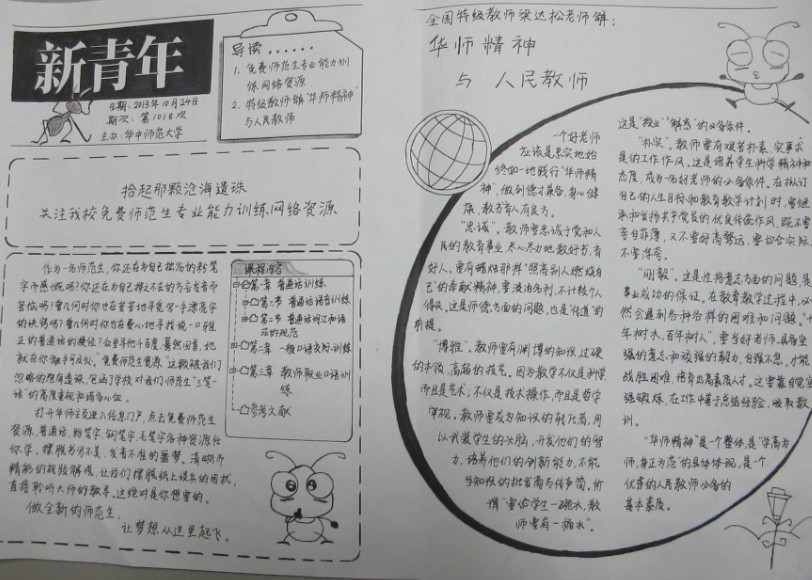 新青年
日期：2013年10月24日
期次：第1018次
主办：华中师范大学
导读......
1. 免费师范生专业能力训
练网络资源
2. 特级教师解“华师精神”
与人民教师
拾起那颗沧海遗珠
关注我校免费师范生专业能力训练网络资源
作为一名师范生，你还在为自己拙劣的粉笔
字而感慨吗？你还在为自己拗口不正的方言发音而
苦恼吗？曾几何时你也在苦苦地寻觅写一手漂亮字
的诀窍吗？曾几何时你也在费心地寻找说一口纯
正的普通话的捷径？众里寻他千百度，蓦然回首，他
就在你触手可及处。“免费师范生资源”这颗被我们
忽略的沧海遗珠，包涵了学校对我们师范生“三笔一
话”的高度重视和谆谆心血。
打开华师主页进入信息门户，点击免费师范生
资源，普通话、粉笔字、钢笔字、毛笔字各种资源任
你学。摆脱书写不美、发音不准的噩梦。清晰而
精彩的视频解说，让我们摆脱纸上谈兵的困扰，
直接聆听大师的教导。这绝对是你想要的。
做全新的师范生，
让梦想从这里起飞。
课程内容
第一章 普通话训练
第一节 普通话语音训练
第二节 普通话词汇和语
法的规范
第二章 一般口语交际训练
第三章 教师职业口语训
练
参考文献
全国特级教师梁达松老师解：
华师精神
与 人民教师
一个好老师
应该是忠实地始
终如一地践行“华师精
神”，做到德才兼备，身心健
康，教书育人有良方。
“忠诚”。教师要忠诚于党和人
民的教育事业，尽心尽力地教好书，育
好人。要有蜡烛那样“照亮别人燃烧自
己”的奉献精神，要淡泊名利，不计较个人
得失。这是师德方面的问题，也是“传道”的
前提。
“博雅”。教师要有渊博的知识，过硬
的本领，高超的技艺。因为教学不仅是科学，
而且是艺术；不仅是技术操作，而且是哲学
审视。教师要成为知识的转化者，用
以武装学生的头脑，开发他们的智
力，培养他们的创新能力，不能
当知识的批发商与传声筒。所
谓“要给学生一碗水，教
师要有一桶水”。
这是“教业”“解惑”的必备条件。
“朴实”。教师要有艰苦朴素、实事求
是的工作作风。这是培养学生科学精神和
态度，成为名好老师的必备条件。在拟订
自己的人生目标和教育教学计划时，要继
承和发扬共产党员的优良传统作风，既不要
妄自菲薄，又不要好高骛远，要切合实际，
不要浮夸。
“刚毅”。这是性格意志方面的问题，是
事业成功的保证。在教育教学过程中，必
然会遇到各种各样的困难和问题。“十
年树木，百年树人”，要当好老师，具备坚
强的意志和顽强的毅力，自强不息，才能
战胜困难，培育出高素质人才。这需要自觉坚
强锻炼，在工作中善于总结经验，吸取教
训。
“华师精神”是一个整体，是“学高为
师，身正为范”的具体体现，是一个
优秀的人民教师必备的
基本素质。